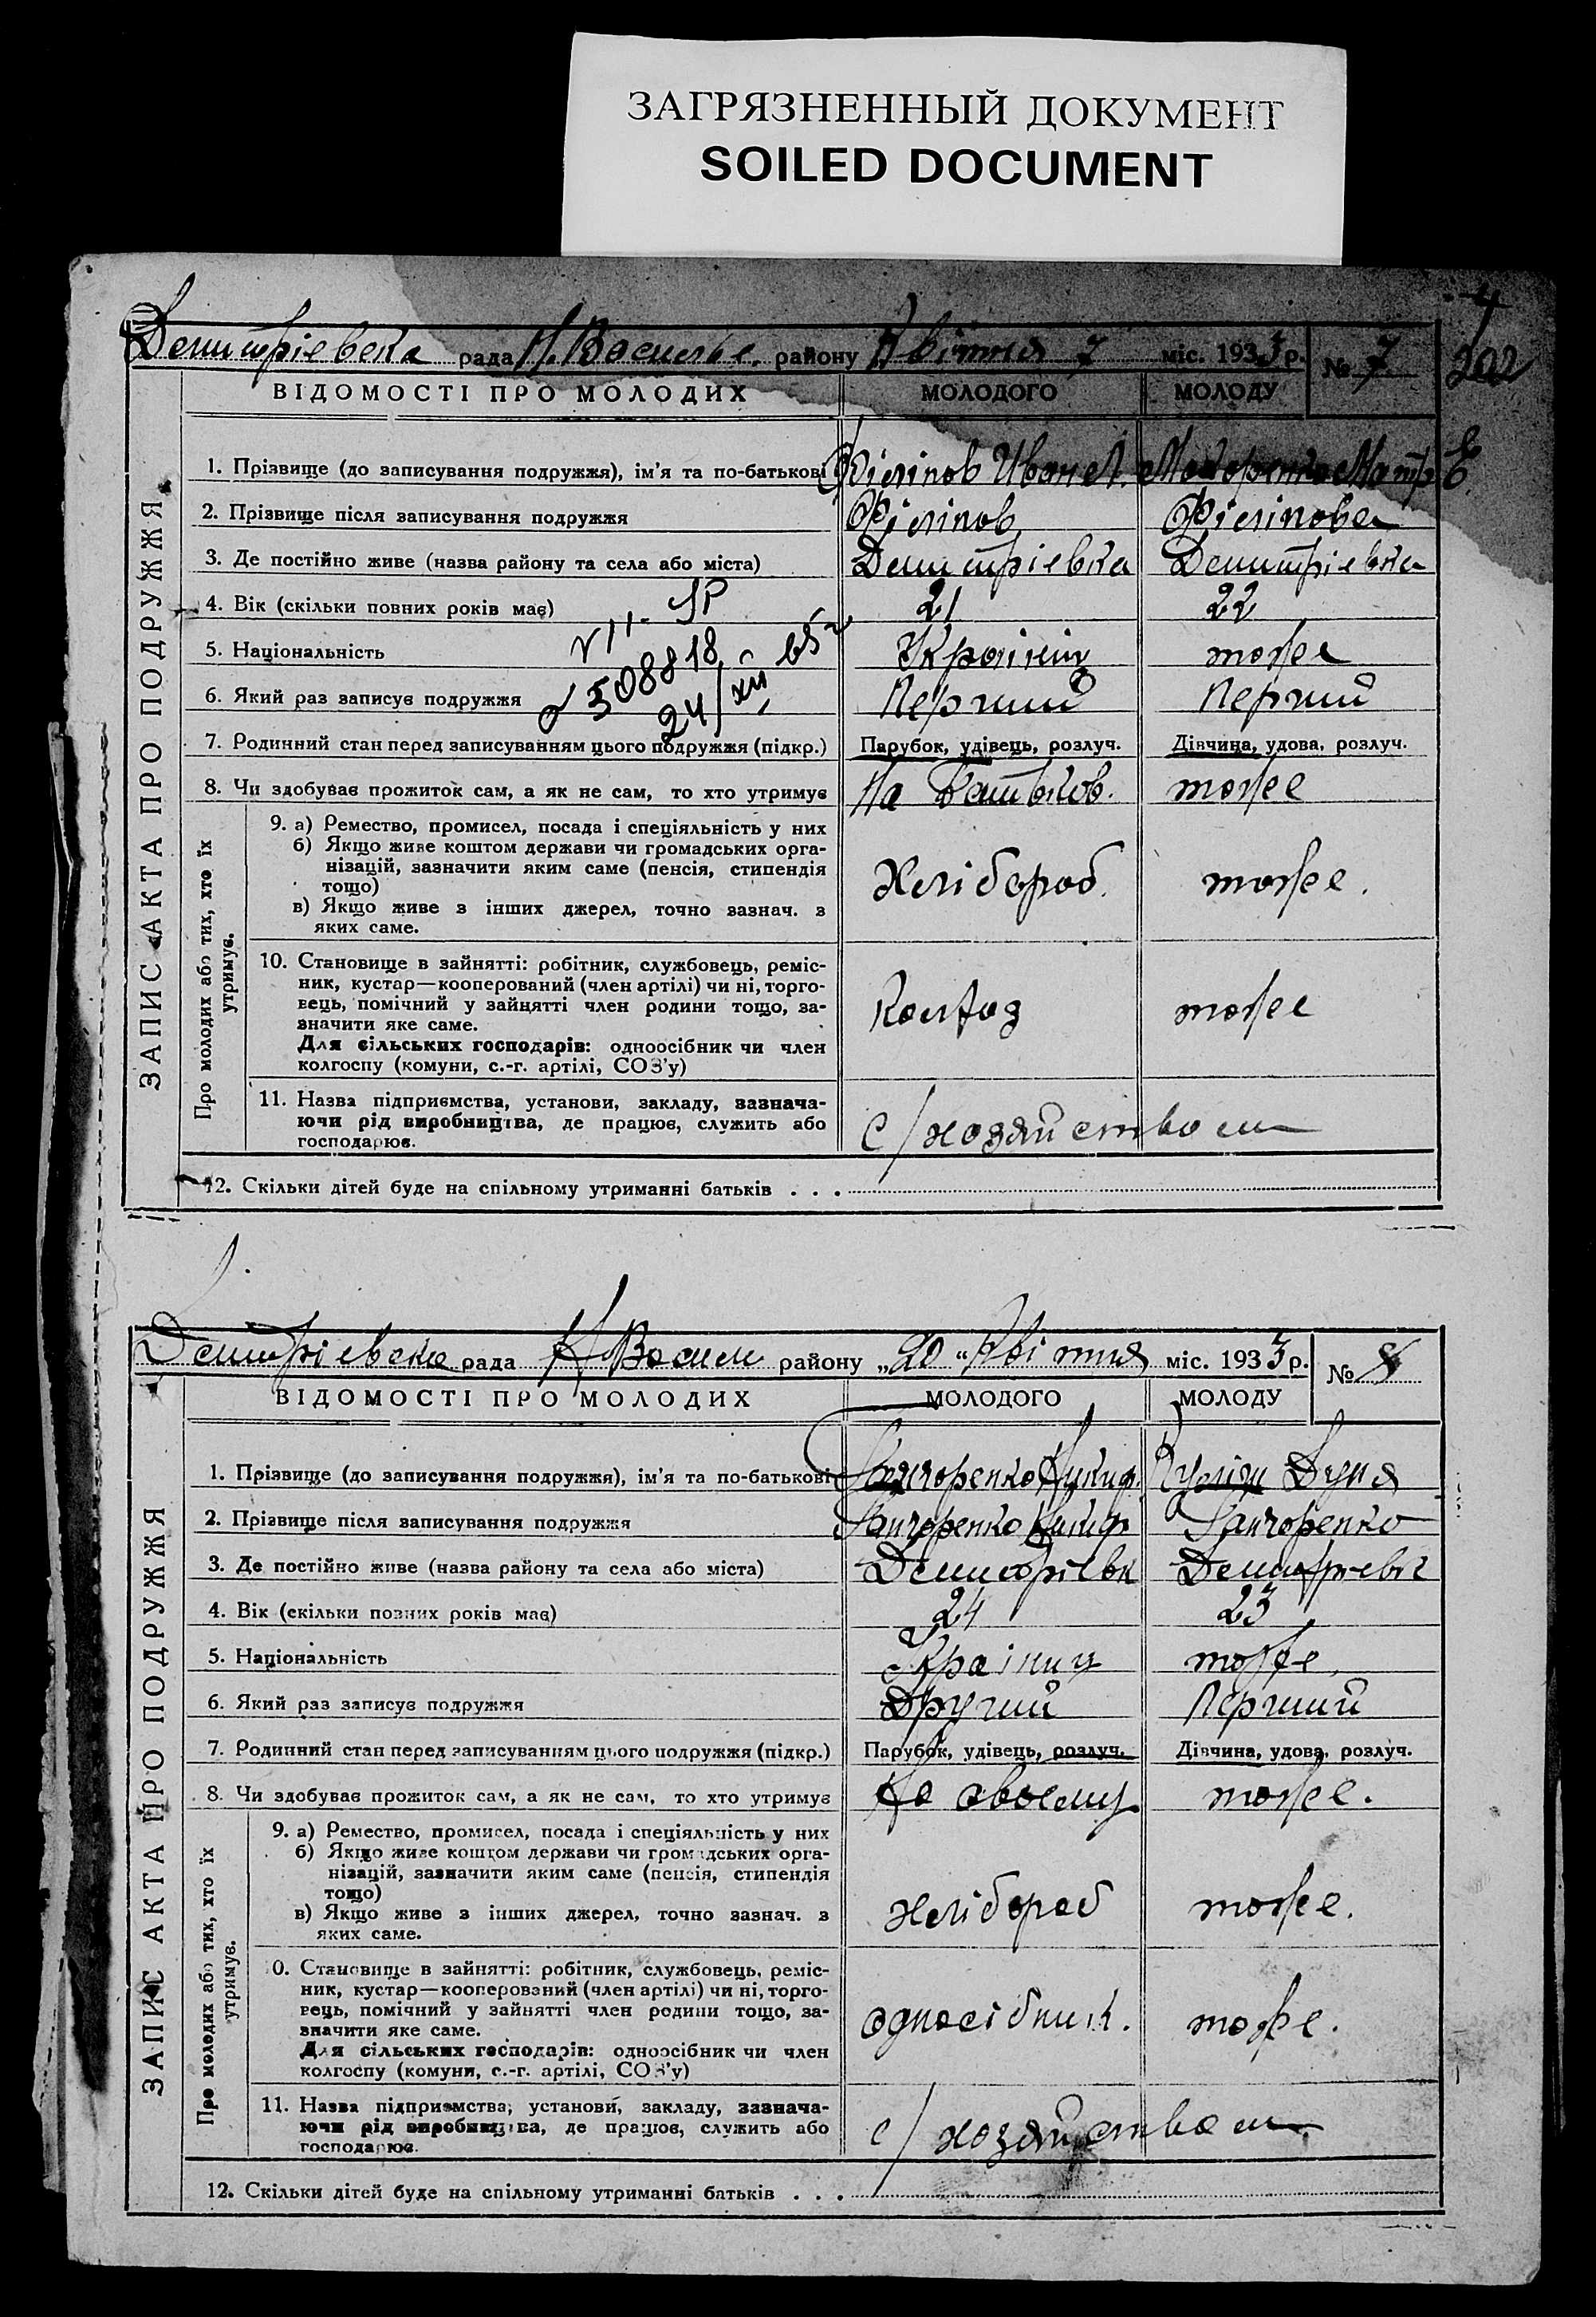 ЗАГРЯЗНЕННЫЙ ДОКУМЕНТ
SOILED DOCUMENT
4
202
Демитріевска рада Н. Василье. району Квітня 7 міс. 1933 р. № 7
ВІДОМОСТІ ПРО МОЛОДИХ МОЛОДОГО МОЛОДУ
ЗАПИС АКТА ПРО ПОДРУЖЖЯ
1. Прізвище (до записування подружжя), ім'я та по-батькові Філіпов Иван Л. Матр Е
2. Прізвище після записування подружжя Філіпов Філіпова
3. Де постійно живе (назва району та села або міста) Демитріевка Демитріевка
4. Вік (скільки повних років має) 21 22
5. Національність Украініц тоже
6. Який раз записує подружжя Перший Перший
508818
24/XII
7. Родинний стан перед записуванням цього подружжя (підкр.) Парубок, удівець, розлуч. Дівчина, удова, розлуч.
8. Чи здобуває прожиток сам, а як не сам, то хто утримує На батьков. тоже
Про молодих або тих, хто їх утримує.
9. а) Ремество, промисел, посада і спеціяльність у них
б) Якщо живе коштом держави чи громадських орга-
нізацій, зазначити яким саме (пенсія, стипендія
тощо)
в) Якщо живе з інших джерел, точно зазнач. з
яких саме.
Хлібороб. тоже.
10. Становище в зайнятті: робітник, службовець, реміс-
ник, кустар—кооперований (член артілі) чи ні, торго-
вець, помічний у зайнятті член родини тощо, за-
значити яке саме.
Для сільських господарів: одноосібник чи член
колгоспу (комуни, с.-г. артілі, СОЗ'у)
Колхоз тоже
11. Назва підприємства, установи, закладу, зазнача-
ючи рід виробництва, де працює, служить або
господарює.
С/хозяйством
12. Скільки дітей буде на спільному утриманні батьків . . .
Демитріевска рада Н Васил району „20“ Квітня міс. 1933 р. № 8
ВІДОМОСТІ ПРО МОЛОДИХ МОЛОДОГО МОЛОДУ
ЗАПИС АКТА ПРО ПОДРУЖЖЯ
1. Прізвище (до записування подружжя), ім'я та по-батькові Ганчоренко Никиф. Дуня
2. Прізвище після записування подружжя Ганчоренко Никиф Ганчоренко
3. Де постійно живе (назва району та села або міста) Демитріевк Демитріевк
4. Вік (скільки повних років має) 24 23
5. Національність Украіниц тоже
6. Який раз записує подружжя Другий Перший
7. Родинний стан перед записуванням цього подружжя (підкр.) Парубок, удівець, розлуч. Дівчина, удова, розлуч.
8. Чи здобуває прожиток сам, а як не сам, то хто утримує На своему тоже.
Про молодих або тих, хто їх утримує.
9. а) Ремество, промисел, посада і спеціяльність у них
б) Якщо живе коштом держави чи громадських орга-
нізацій, зазначити яким саме (пенсія, стипендія
тощо)
в) Якщо живе з інших джерел, точно зазнач. з
яких саме.
Хлібороб тоже.
0. Становище в зайнятті: робітник, службовець, реміс-
ник, кустар—кооперований (член артілі) чи ні, торго-
вець, помічний у зайнятті член родини тощо, за-
значити яке саме.
Для сільських господарів: одноосібник чи член
колгоспу (комуни, с.-г. артілі, СОЗ'у)
односібник. тоже.
11. Назва підприємства, установи, закладу, зазнача-
ючи рід виробництва, де працює, служить або
господарює.
с/хозяйством
12. Скільки дітей буде на спільному утриманні батьків . . .